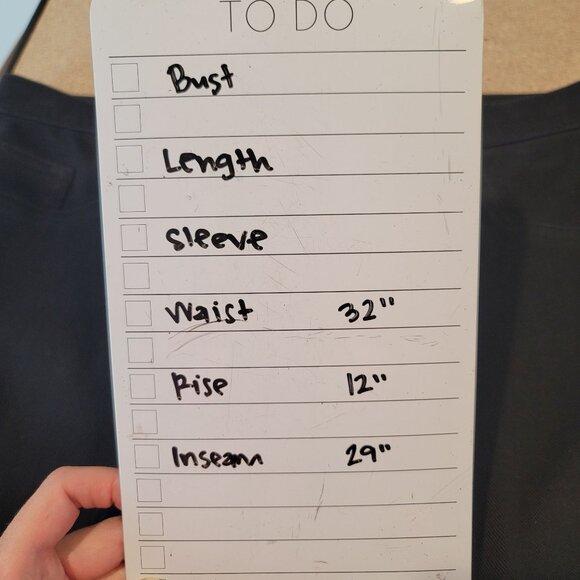 TO DO
Bust
Length
Sleeve
Waist 32"
Rise 12"
Inseam 29"